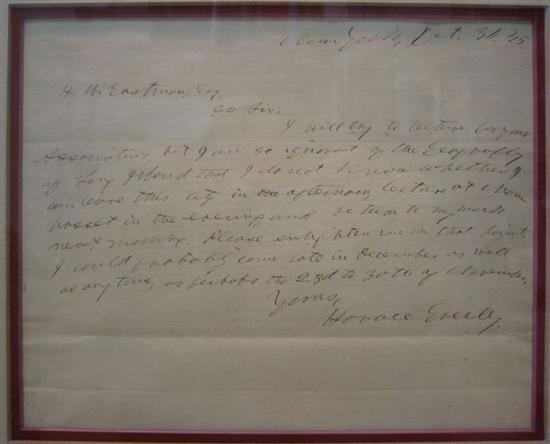 New York, Oct. 31, 49
H. W. Eastman, Esq.
Dr Sir:
I will try to lecture for your
Association, but I am so ignorant of the Geography
of Long Island that I do not know whether I
can leave this city in the afternoon, lecture at Man-
hasset in the evening and return to my work
next morning. Please enlighten me on that point.
I could probably come late in December as well
as any time, or perhaps the 23d to 30th of November.
Yours,
Horace Greeley.